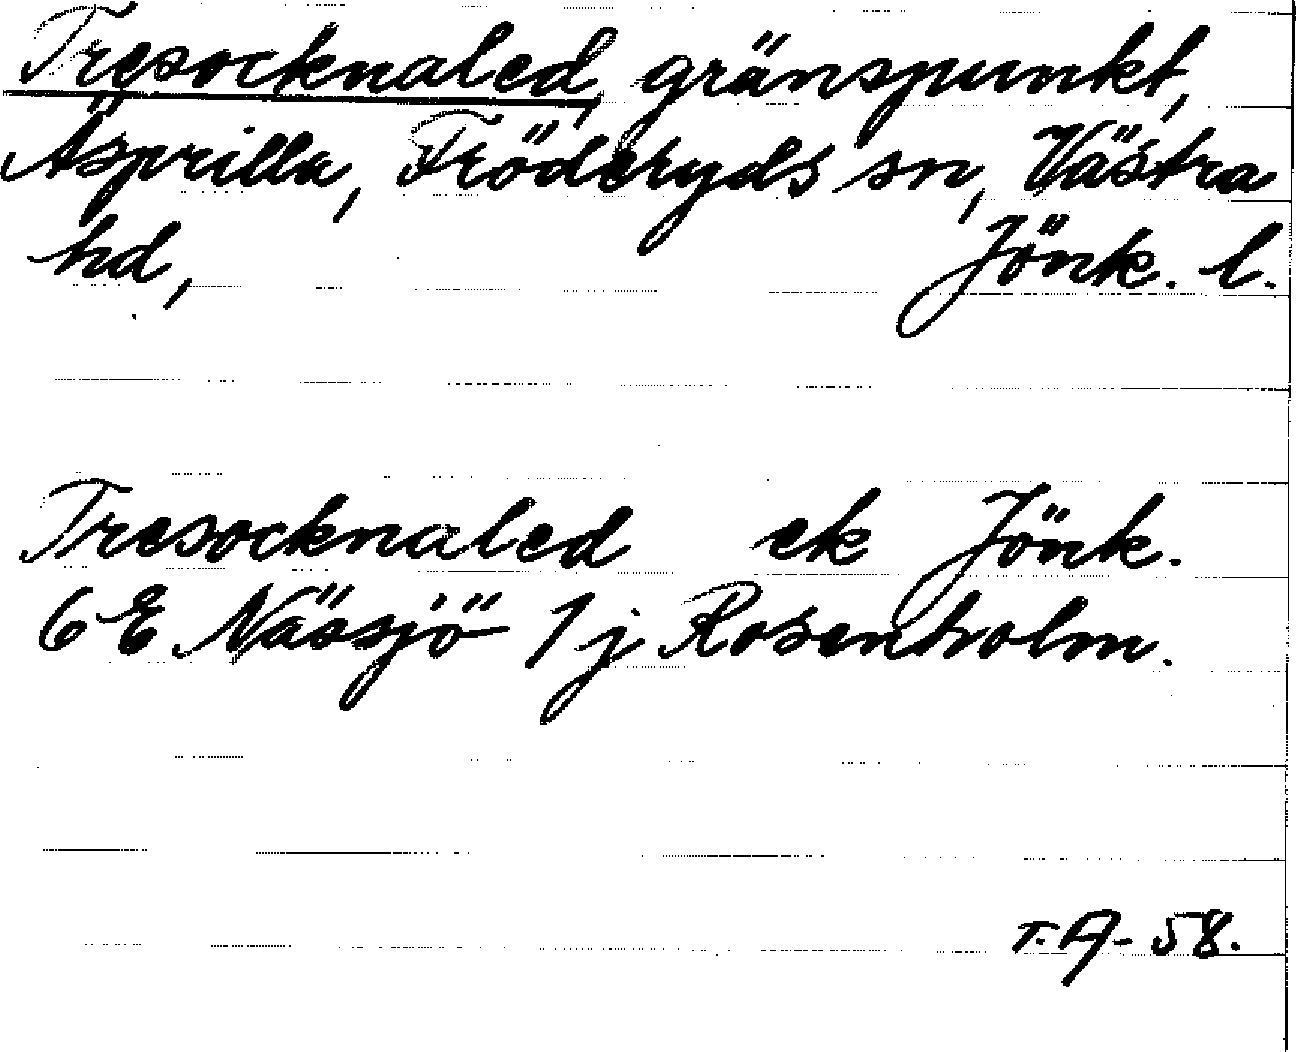 Tresocknaled, gränspunkt,
Äsprilla, Fröderyds sn, Västra
hd, Jönk. l.
Tresocknaled ek Jönk.
6 E Nässjö 1 j Rosenholm.
T. A- 58.